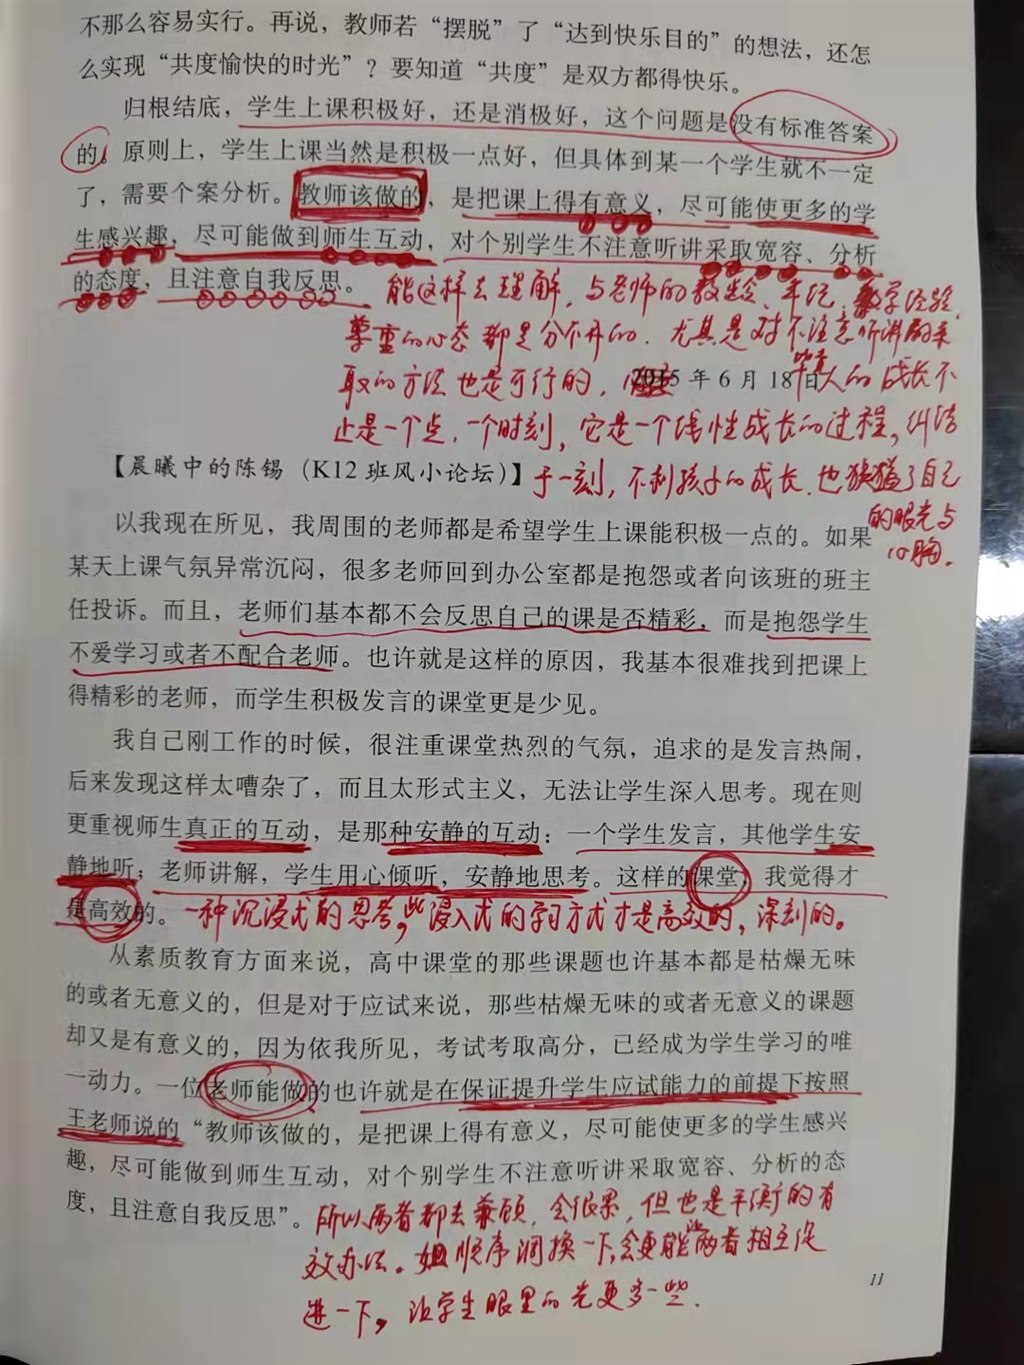 不那么容易实行。再说，教师若“摆脱”了“达到快乐目的”的想法，还怎
么实现“共度愉快的时光”？要知道“共度”是双方都得快乐。
归根结底，学生上课积极好，还是消极好，这个问题是没有标准答案
的。原则上，学生上课当然是积极一点好，但具体到某一个学生就不一定
了，需要个案分析。教师该做的，是把课上得有意义，尽可能使更多的学
生感兴趣，尽可能做到师生互动，对个别学生不注意听讲采取宽容、分析
的态度，且注意自我反思。
能这样去理解，与老师的教龄、年纪、教学经验、
尊重的心态都是分不开的。尤其是对不注意听讲的采
取的方法也是可行的，
2015 年 6 月 18 日
毕竟人的成长不
止是一个点，一个时刻，它是一个线性成长的过程，纠结
于一刻，不利孩子的成长，也狭隘了自己
的眼光与
心胸。
【晨曦中的陈锡（K12 班风小论坛）】
以我现在所见，我周围的老师都是希望学生上课能积极一点的。如果
某天上课气氛异常沉闷，很多老师回到办公室都是抱怨或者向该班的班主
任投诉。而且，老师们基本都不会反思自己的课是否精彩，而是抱怨学生
不爱学习或者不配合老师。也许就是这样的原因，我基本很难找到把课上
得精彩的老师，而学生积极发言的课堂更是少见。
我自己刚工作的时候，很注重课堂热烈的气氛，追求的是发言热闹，
后来发现这样太嘈杂了，而且太形式主义，无法让学生深入思考。现在则
更重视师生真正的互动，是那种安静的互动：一个学生发言，其他学生安
静地听；老师讲解，学生用心倾听，安静地思考。这样的课堂，我觉得才
是高效的。
一种沉浸式的思考，浸入式的学习方式才是高效的，深刻的。
从素质教育方面来说，高中课堂的那些课题也许基本都是枯燥无味
的或者无意义的，但是对于应试来说，那些枯燥无味的或者无意义的课题
却又是有意义的，因为依我所见，考试考取高分，已经成为学生学习的唯
一动力。一位老师能做的也许就是在保证提升学生应试能力的前提下按照
王老师说的“教师该做的，是把课上得有意义，尽可能使更多的学生感兴
趣，尽可能做到师生互动，对个别学生不注意听讲采取宽容、分析的态
度，且注意自我反思”。
所以两者都去兼顾，会很累，但也是平衡的有
效办法。顺序调换一下，会更能让两者相互促
进一下，让学生眼里的光更多一些．
11